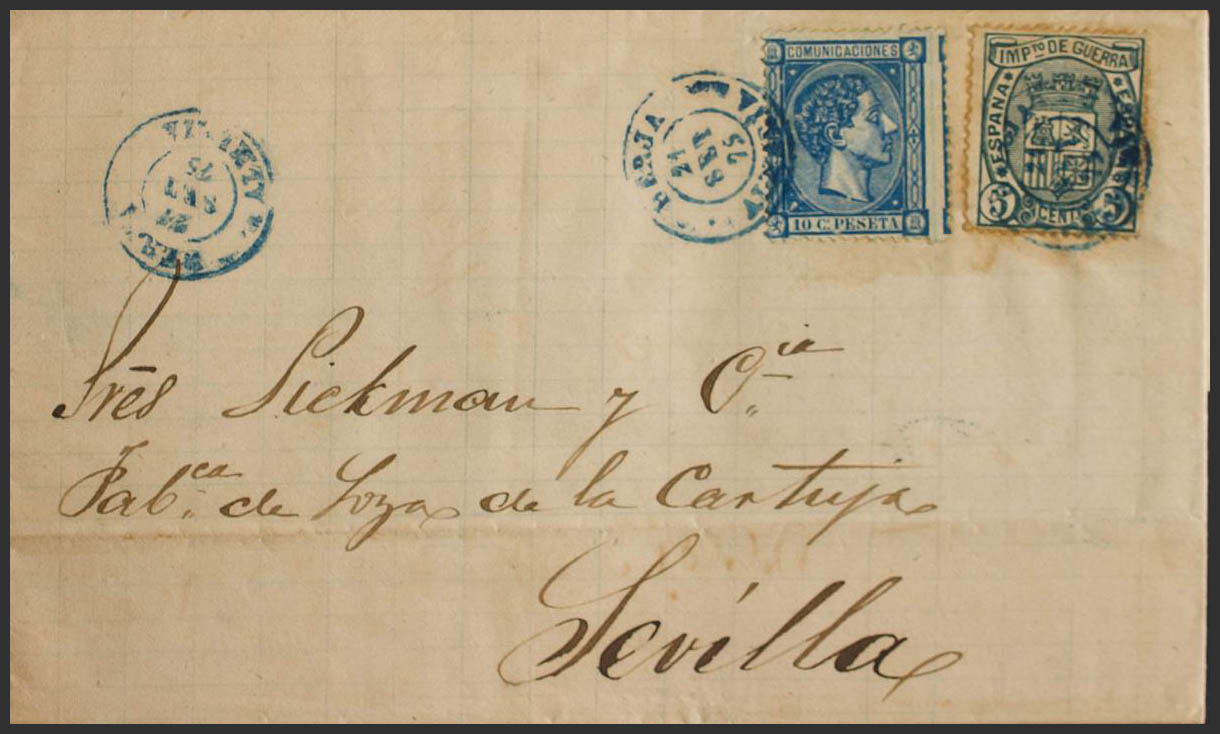 BERJA
ALMERIA
21
SET
75
BERJA
ALMERIA
21
SET
75
COMUNICACIONES
10 C. PESETA
IMPTO DE GUERRA
ESPAÑA
ESPAÑA
5 CENT 5
Sres Pickman y Cia
Fabca de Loza de la Cartuja
Sevilla